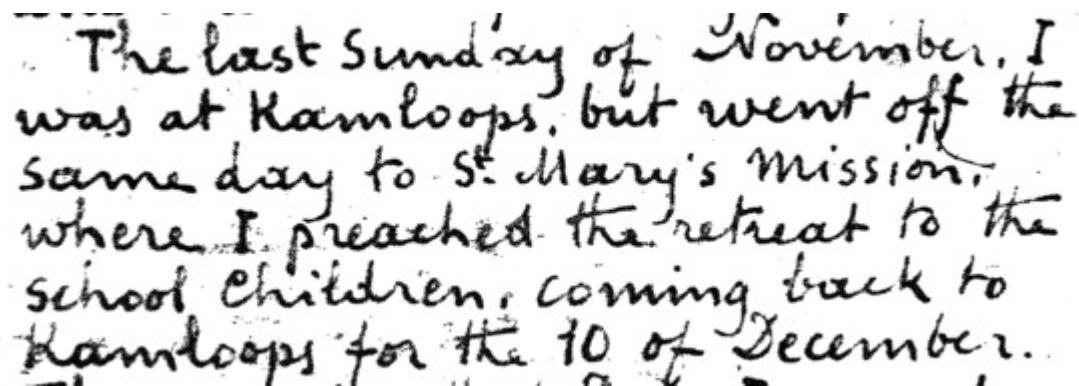 The last Sunday of November, I
was at Kamloops, but went off the
same day to St. Mary's Mission,
where I preached the retreat to the
school Children, coming back to
Kamloops for the 10 of December.